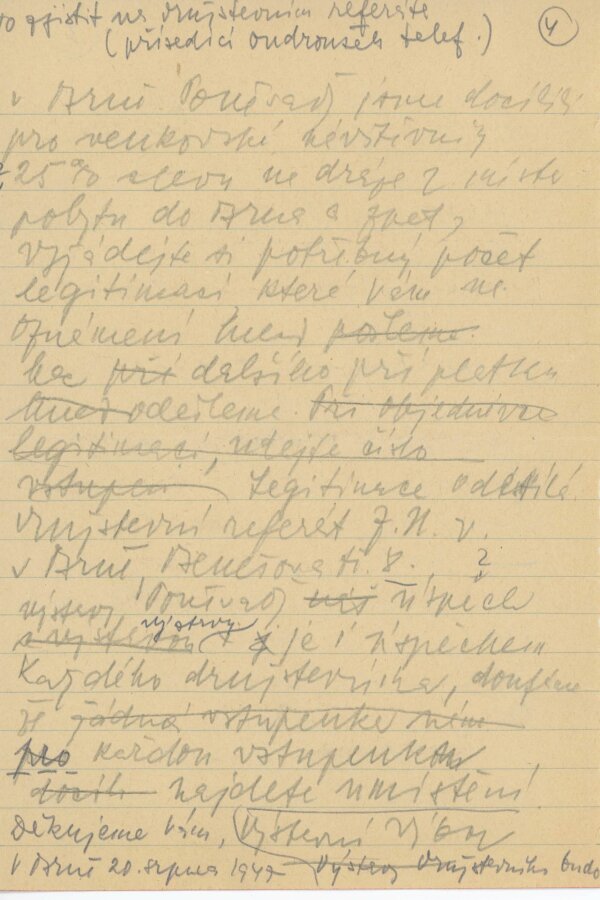 to zjistit na družstevním referáte
(přísedící Ondroušek telef.)
4
v Brně. Poněvadž jsme docílili
pro venkovské návštěvníky
25% slevu na dráze z místa
pobytu do Brna a zpět,
vyžádejte si potřebný počet
legitimací, které vám na
oznámení hned pošleme.
bez při dalšího příplatku
hned odešleme. Při objednávce
legitimací, udejte číslo
vstupen Legitimace odesílá
družstevní referát Z.N.V.
v Brně, Benešova tř. 8. ?
výstavy Poněvadž náš úspěch
s výstavou výstavy je i úspěchem
každého družstevníka, doufáme
že žádná vstupenka nám
pro každou vstupenkou
najdete umístění.
Děkujeme Vám, Výstavní výbor
V Brně 20. srpna 1947 Výstavy družstevního budo